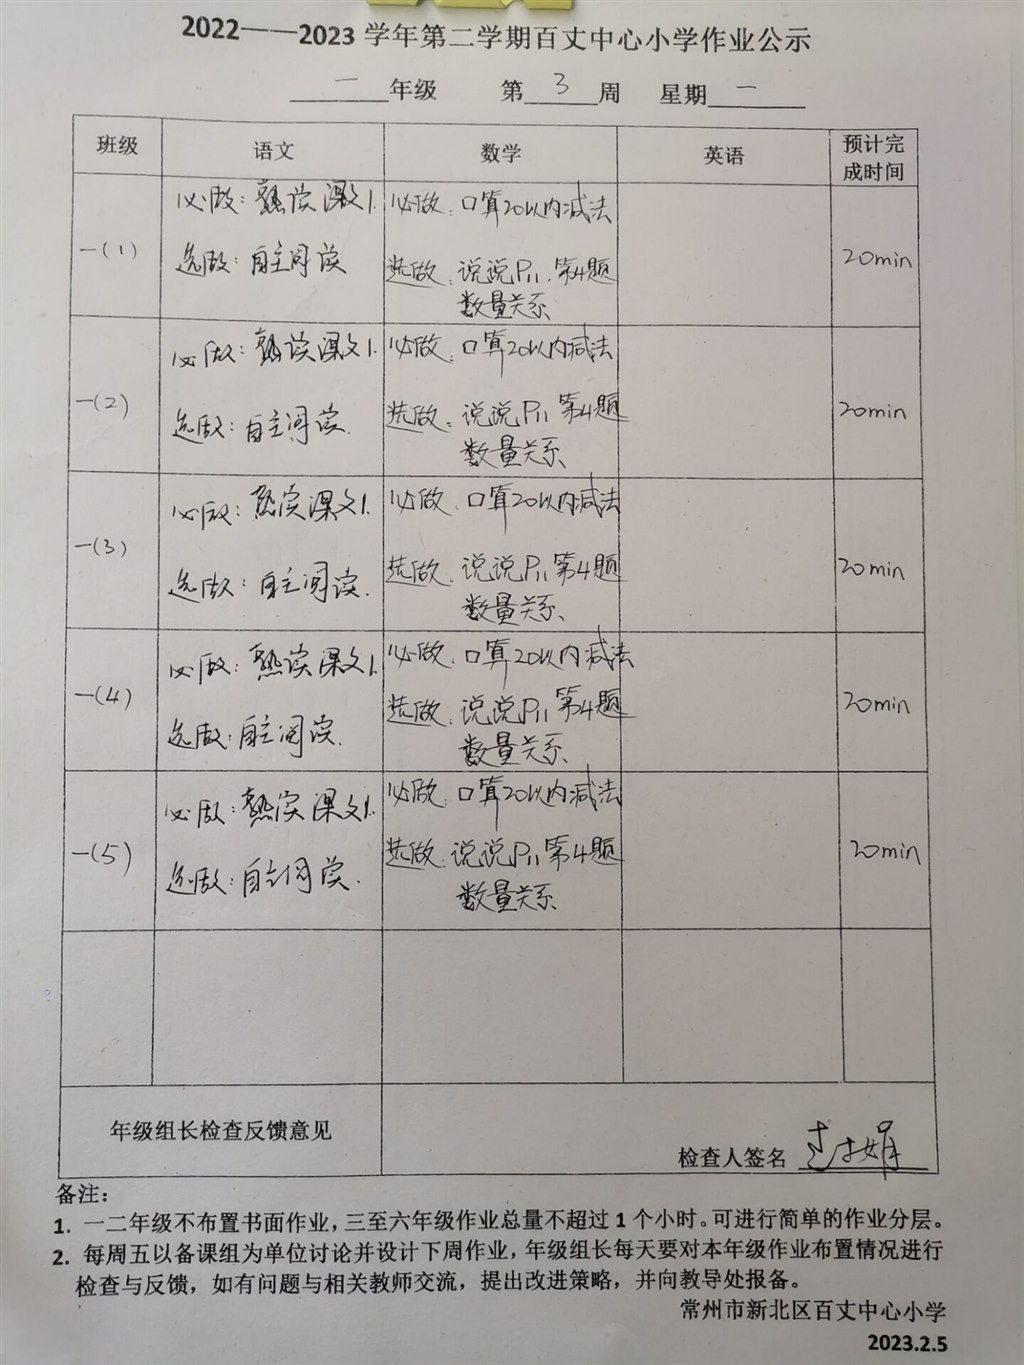 2022——2023 学年第二学期百丈中心小学作业公示
一 年级 第 3 周 星期 一
班级 语文 数学 英语 预计完成时间
一(1) 必做：熟读课文1. 必做：口算20以内减法 20min
选做：自主阅读 选做：说说P11.第4题
数量关系
一(2) 必做：熟读课文1. 必做：口算20以内减法 20min
选做：自主阅读. 选做：说说P11第4题
数量关系.
一(3) 必做：熟读课文1. 必做：口算20以内减法 20min
选做：自主阅读. 选做：说说P11第4题
数量关系.
一(4) 必做：熟读课文1. 必做：口算20以内减法 20min
选做：自主阅读. 选做：说说P11第4题
数量关系.
一(5) 必做：熟读课文1. 必做：口算20以内减法 20min
选做：自主阅读. 选做：说说P11第4题
数量关系
年级组长检查反馈意见 检查人签名
备注：
1. 一二年级不布置书面作业，三至六年级作业总量不超过 1 个小时。可进行简单的作业分层。
2. 每周五以备课组为单位讨论并设计下周作业，年级组长每天要对本年级作业布置情况进行
检查与反馈，如有问题与相关教师交流，提出改进策略，并向教导处报备。
常州市新北区百丈中心小学
2023.2.5